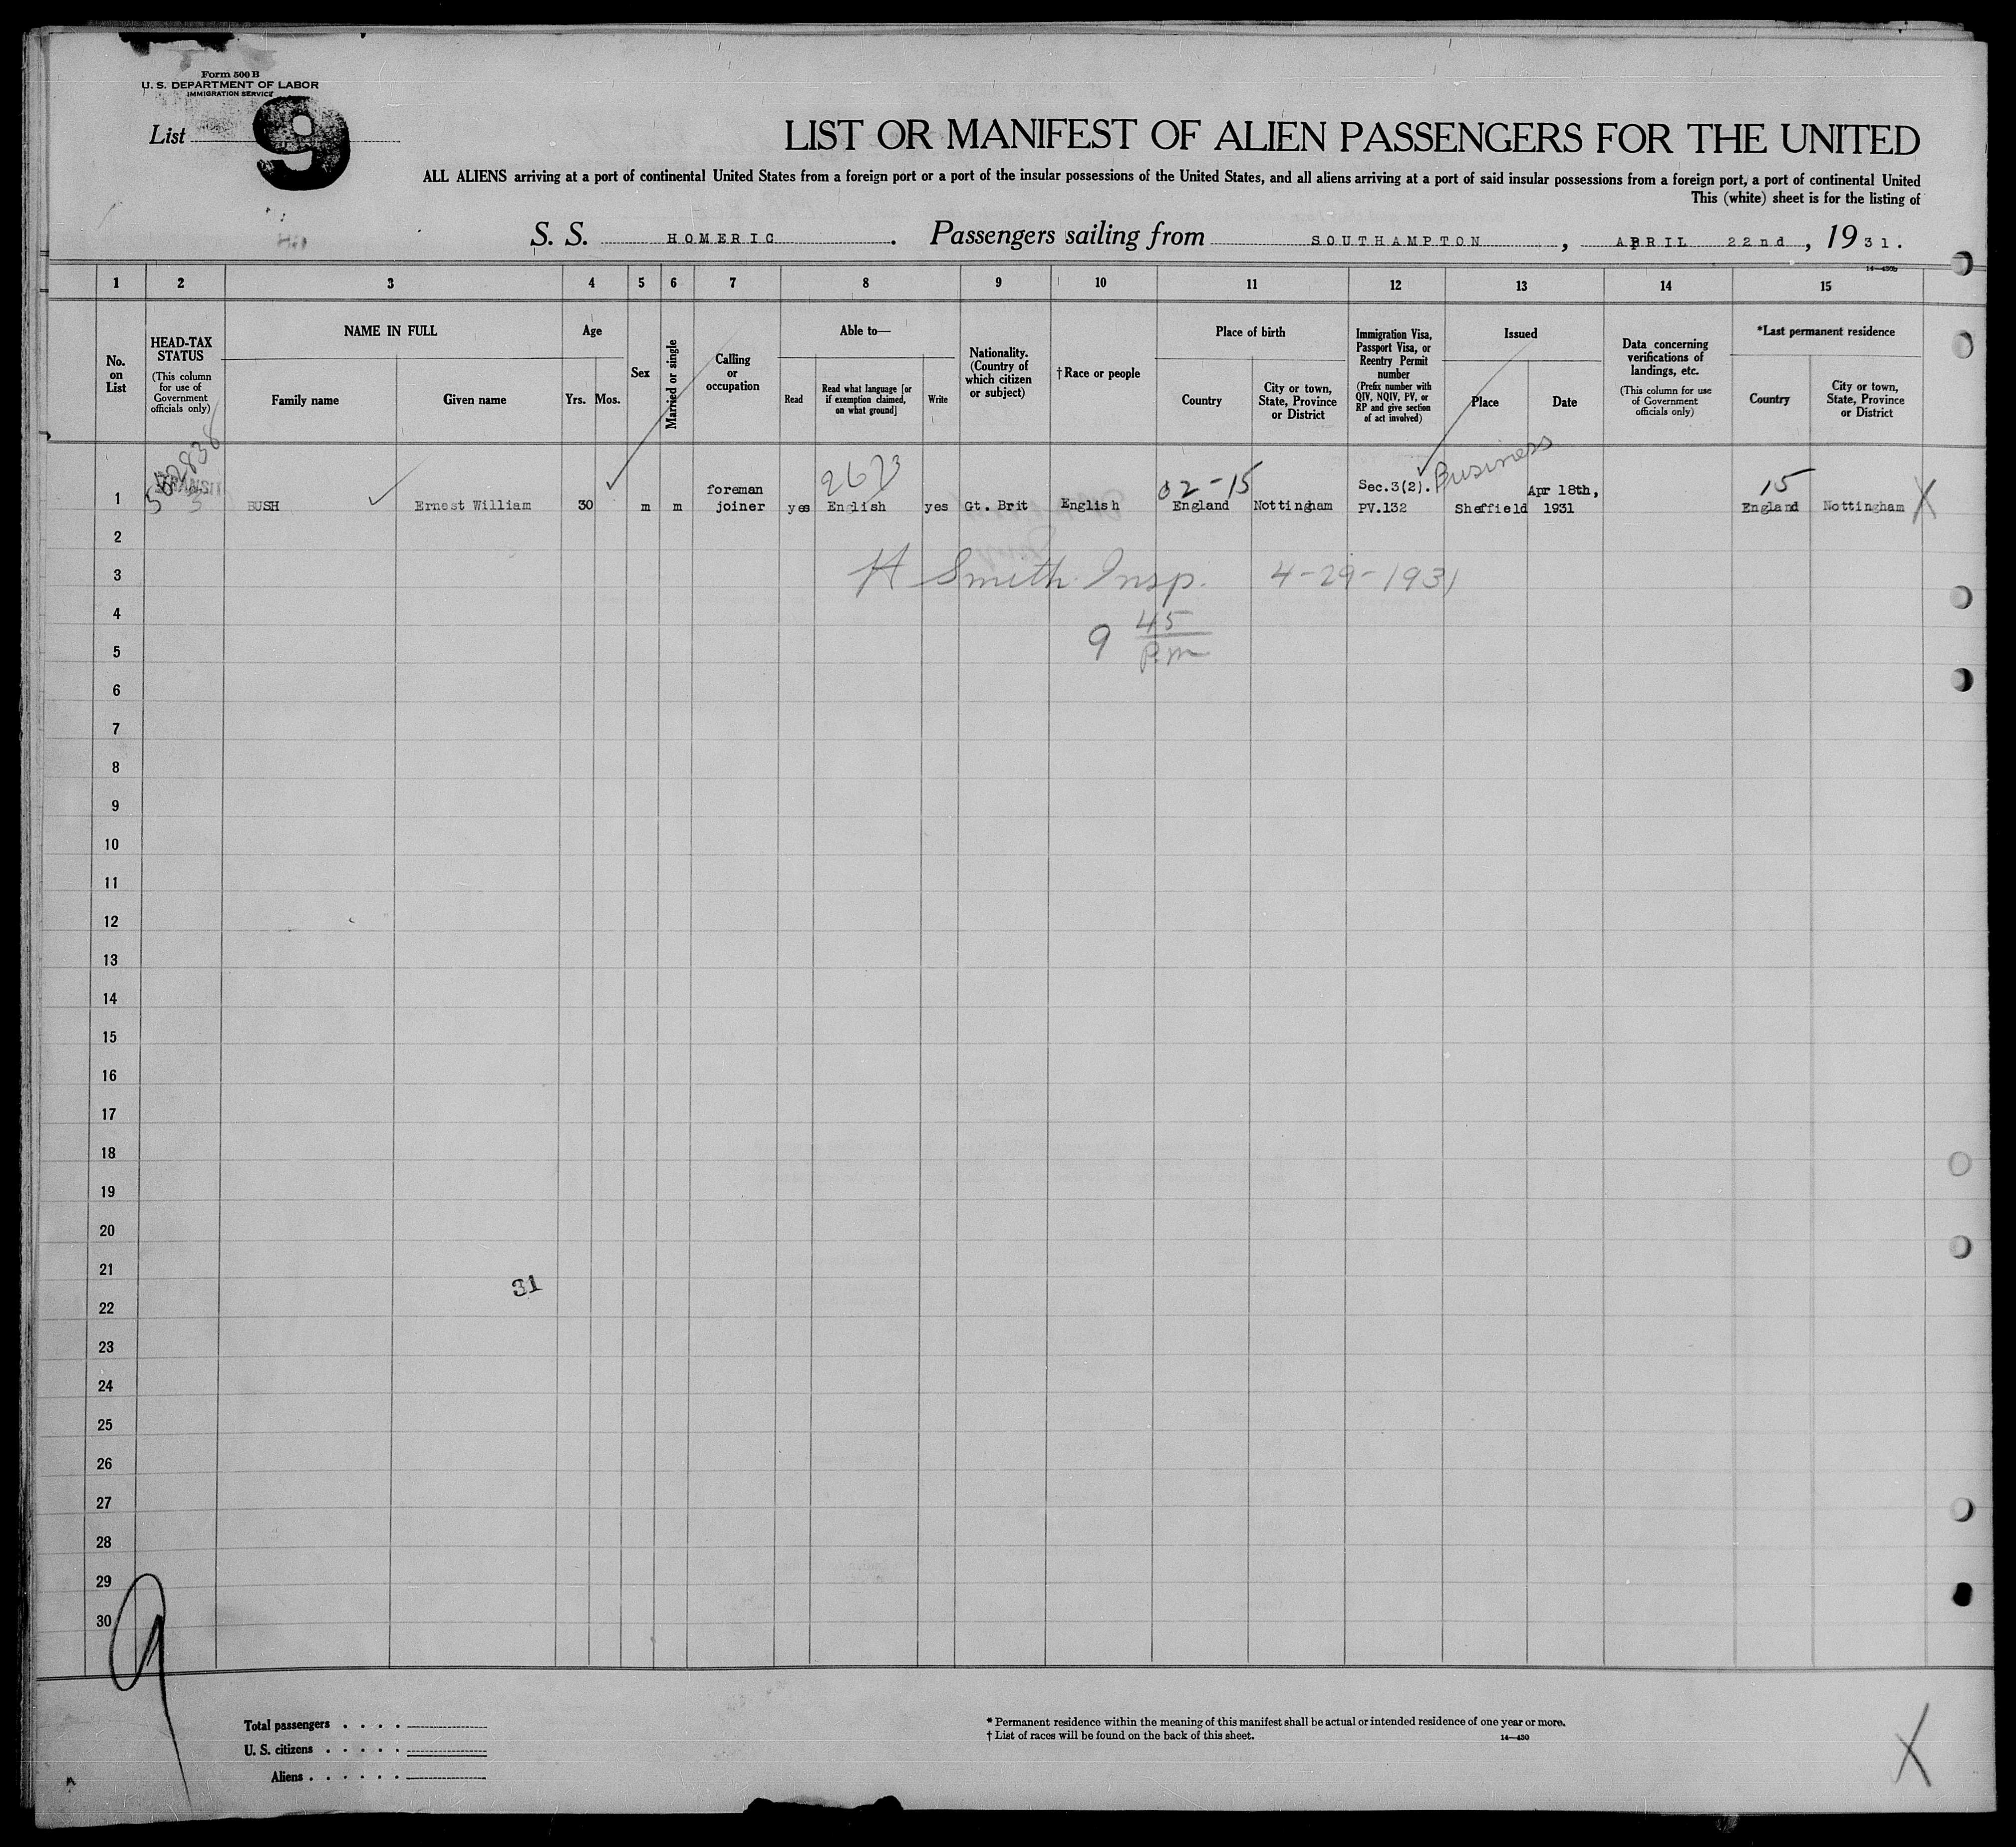 Form 500 B
U. S. DEPARTMENT OF LABOR
IMMIGRATION SERVICE
List 9
LIST OR MANIFEST OF ALIEN PASSENGERS FOR THE UNITED
ALL ALIENS arriving at a port of continental United States from a foreign port or a port of the insular possessions of the United States, and all aliens arriving at a port of said insular possessions from a foreign port, a port of continental United
This (white) sheet is for the listing of
S. S. HOMERIC. Passengers sailing from SOUTHAMPTON, APRIL 22nd, 1931.
14—430b
1 2 3 4 5 6 7 8 9 10 11 12 13 14 15
No. on List
HEAD-TAX STATUS
(This column for use of Government officials only)
NAME IN FULL
Family name
Given name
Age
Yrs. Mos.
Sex
Married or single
Calling or occupation
Able to—
Read
Read what language [or if exemption claimed, on what ground]
Write
Nationality. (Country of which citizen or subject)
† Race or people
Place of birth
Country
City or town, State, Province or District
Immigration Visa, Passport Visa, or Reentry Permit number
(Prefix number with QIV, NQIV, PV, or RP and give section of act involved)
Issued
Place
Date
Data concerning verifications of landings, etc.
(This column for use of Government officials only)
*Last permanent residence
Country
City or town, State, Province or District
Business
2673 02-15 15
TRANSIT
foreman Sec.3(2). Apr 18th,
1 BUSH Ernest William 30 m m joiner yes English yes Gt. Brit English England Nottingham PV.132 Sheffield 1931 England Nottingham X
2
3 H Smith Insp. 4-29-1931
4
9 45 P.m
5
6
7
8
9
10
11
12
13
14
15
16
17
18
19
20
21
31
22
23
24
25
26
27
28
29
30
9
Total passengers . . . .
U. S. citizens . . . . .
Aliens . . . . . .
* Permanent residence within the meaning of this manifest shall be actual or intended residence of one year or more.
† List of races will be found on the back of this sheet.
14—430
X